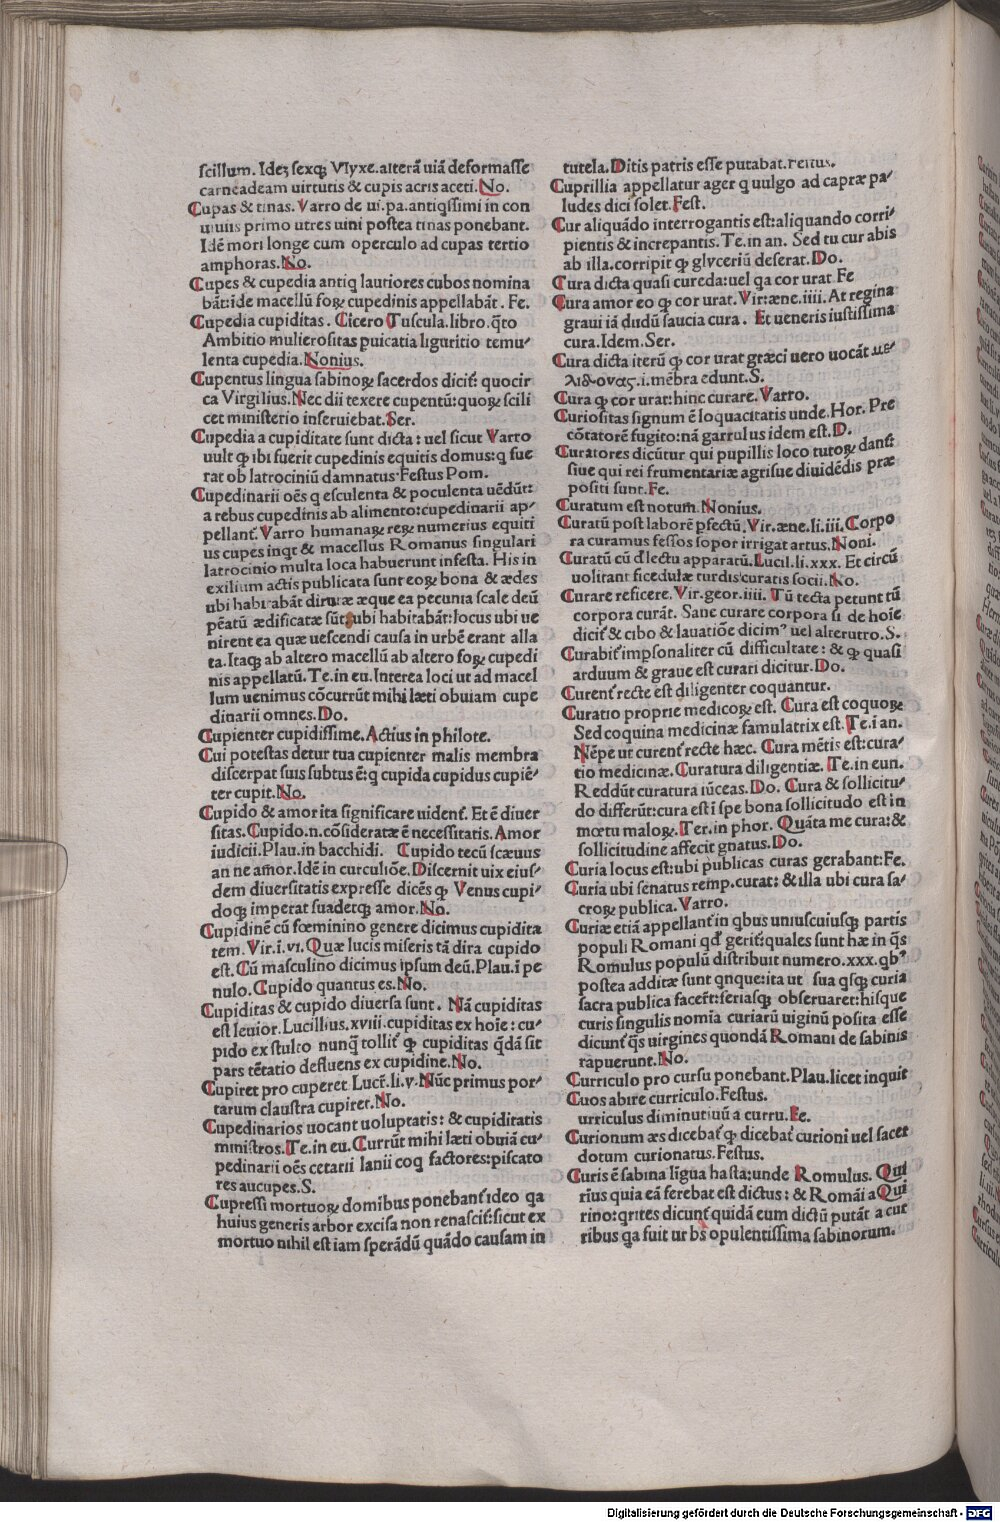 scillum. Ideʒ sexqʒ Vlyxe.alterā uiā deformasse
carneadeam uirtutis & cupis acris aceti. No.
Cupas & tinas. Varro de ui. pa.antiqssimi in con
uiuiis primo utres uini postea tinas ponebant.
Idē mori longe cum operculo ad cupas tertio
amphoras. No.
Cupes & cupedia antiq lautiores cubos nomina
bāt:ide macellū foꝝ cupedinis appellabāt. Fe.
Cupedia cupiditas. Cicero Tuscula.libro.q̄to
Ambitio mulierositas puicatia liguritio temu-
lenta cupedia. Nonius.
Cupentus lingua sabinoꝝ sacerdos dicit: quocir
ca Virgilius. Nec dii texere cupentū:quoꝝ scili
cet ministerio inseruiebat. Ser.
Cupedia a cupiditate sunt dicta: uel sicut Varro
uult ꝙ ibi fuerit cupedinis equitis domus:q fue
rat ob latrociniū damnatus Festus Pom.
Cupedinarii oēs q esculenta & poculenta uēdūt:
a rebus cupedinis ab alimento:cupedinarii ap-
pellant. Varro humanaꝝ reꝝ numerius equiti
us cupes inqt & macellus Romanus singulari
latrocinio multa loca habuerunt infesta. His in
exilium actis publicata sunt eoꝝ bona & ædes
ubi habitabāt dirutæ æque ea pecunia scale deū
pēatū ædificatæ sūt:ubi habitabāt:locus ubi ue
nirent ea quæ uescendi causa in urbē erant alla
ta.Itaqʒ ab altero macellū ab altero foꝝ cupedi
nis appellatū. Te.in eu.Interea loci ut ad macel
lum uenimus cōcurrūt mihi læti obuiam cupe
dinarii omnes. Do.
Cupienter cupidissime. Actius in philote.
Cui potestas detur tua cupienter malis membra
discerpat suis subtus ē:q cupida cupidus cupiē-
ter cupit. No.
Cupido & amor ita significare uident. Et ē diuer
sitas. Cupido.n.cōsideratæ ē necessitatis. Amor
iudicii.Plau.in bacchidi. Cupido tecū scæuus
an ne amor.Idē in curculiōe.Discernit uix eius-
dem diuersitatis expresse dicēs ꝙ Venus cupi-
doqʒ imperat suadetqʒ amor.No.
Cupidinē cū fœminino genere dicimus cupidita
tem. Vir.i.vi. Quæ lucis miseris tā dira cupido
est. Cū masculino dicimus ipsum deū.Plau.i pe
nulo. Cupido quantus es. No.
Cupiditas & cupido diuersa sunt. Nā cupiditas
est leuior. Lucillius.xviii.cupiditas ex hoie: cu-
pido ex stulto nunq̄ tollit ꝙ cupiditas q̄dā sit
pars tētatio defluens ex cupidine. No.
Cupiret pro cuperet Lucr̄.li.v. Nūc primus por-
tarum claustra cupiret. No.
Cupedinarios uocant uoluptatis: & cupiditatis
ministros. Te.in eu. Currūt mihi læti obuiā cu-
pedinarii oēs cetarii lanii coq factores:piscato
res aucupes.S.
Cupressi mortuoꝝ domibus ponebant ideo qa
huius generis arbor excisa non renascit:sicut ex
mortuo nihil est iam sperādū quādo causam in
tutela. Ditis patris esse putabat. Festus.
Cuprillia appellatur ager q uulgo ad capræ pa-
ludes dici solet. Fest.
Cur aliquādo interrogantis est:aliquando corri-
pientis & increpantis. Te.in an. Sed tu cur abis
ab illa.corripit ꝙ glyceriū deserat. Do.
Cura dicta quasi cureda:uel qa cor urat Fe
Cura amor eo ꝙ cor urat. Vir:æne.iiii. At regina
graui iā dudū saucia cura. Et ueneris iustissima
cura.Idem.Ser.
Cura dicta iterū ꝙ cor urat græci uero uocāt με-
λιδονας.i.mēbra edunt.S.
Cura ꝙ cor urat:hinc curare. Varro.
Curiositas signum ē loquacitatis unde.Hor. Pre
cōtatorē fugito:nā garrulus idem est. D.
Curatores dicūtur qui pupillis loco tutoꝝ dant
siue qui rei frumentariæ agrisue diuidēdis præ
positi sunt. Fe.
Curatum est notum. Nonius.
Curatū post laborē pfectū. Vir.æne.li.iii. Corpo
ra curamus fessos sopor irrigat artus. Noni.
Curatū cū dlectu apparatū. Lucil.li.xxx. Et circū
uolitant ficedulæ turdis curatis socii. No.
Curare reficere. Vir.geor.iiii. Tū tecta petunt tū
corpora curāt. Sane curare corpora si de hoie
dicit & cibo & lauatiōe dicim⁹ uel alterutro.S.
Curabit impsonaliter cū difficultate: & ꝙ quasi
arduum & graue est curari dicitur. Do.
Curent recte est diligenter coquantur.
Curatio proprie medicoꝝ est. Cura est coquoꝝ
Sed coquina medicinæ famulatrix est. Te.i an.
Nēpe ut curent recte hæc. Cura mētis est:cura-
tio medicinæ. Curatura diligentiæ. Te.in eun.
Reddūt curatura iūceas. Do. Cura & sollicitu-
do differūt:cura est i spe bona sollicitudo est in
mœtu maloꝝ. Ter.in phor. Quāta me cura:&
sollicitudine affecit gnatus. Do.
Curia locus est:ubi publicas curas gerabant:Fe.
Curia ubi senatus remp.curat: & illa ubi cura sa-
croꝝ publica. Varro.
Curiæ etiā appellant in qbus uniuscuiusqʒ partis
populi Romani qd gerit:quales sunt hæ in q̄s
Romulus populū distribuit numero.xxx.qb⁹
postea additæ sunt qnque:ita ut sua qsqʒ curia
sacra publica facent:feriasqʒ obseruaret:hisque
curis singulis nomīa curiarū uiginū posita esse
dicunt q̄s uirgines quondā Romani de sabinis
rapuerunt. No.
Curriculo pro cursu ponebant.Plau.licet inquit
Cuos abire curriculo.Festus.
urriculus diminutiuū a curru. Fe.
Curionum æs dicebat ꝙ dicebat curioni uel sacer
dotum curionatus.Festus.
Curis ē sabina līgua hasta:unde Romulus. Qui
rius quia eā ferebat est dictus: & Romāi a Qui
rino:qrites dicunt quidā eum dictū putāt a cur
ribus qa fuit urbs opulentissima sabinorum.
Digitalisierung gefördert durch die Deutsche Forschungsgemeinschaft - DFG